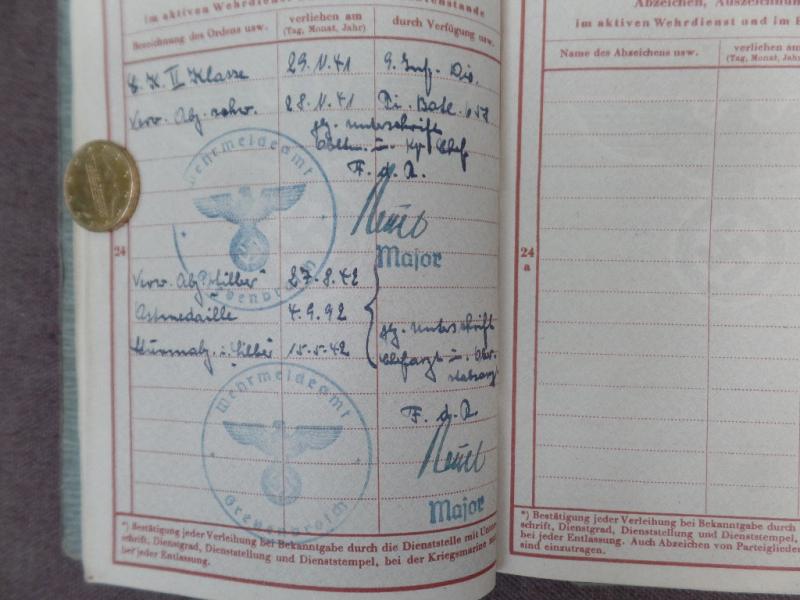 im aktiven Wehrdienst
Bezeichnung des Ordens usw.
verliehen am
(Tag, Monat, Jahr)
durch Verfügung usw.
E. K. II Klasse 29.11.41 9. Inf. Div.
Verw. Abz. schw. 28.11.41 Pi. Batl.
gez. Unterschrift
u. Kp. Chef
F. d. R.
Major
Wehrmeldeamt
Grevenbroich
24
Verw. Abz. Silber 27.8.42
Ostmedaille 4.9.42
Sturmabz. i. Silber 15.5.42
gez. Unterschrift
Chefarzt u. Ober-
stabsarzt
F. d. R.
Major
Wehrmeldeamt
Grevenbroich
*) Bestätigung jeder Verleihung bei Bekanntgabe durch die Dienststelle mit
schrift, Dienstgrad, Dienststellung und Dienststempel, bei der Kriegsmarine
bei jeder Entlassung.
Abzeichen,
im aktiven Wehrdienst und im
Name des Abzeichens usw.
verliehen am
(Tag, Monat, Jahr)
24
a
*) Bestätigung jeder Verleihung bei Bekanntgabe durch
schrift, Dienstgrad, Dienststellung und Dienststempel,
bei jeder Entlassung. Auch Abzeichen von
sind einzutragen.